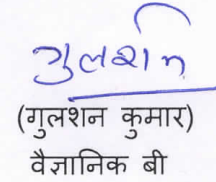 गुलशन
(गुलशन कुमार)
वैज्ञानिक बी